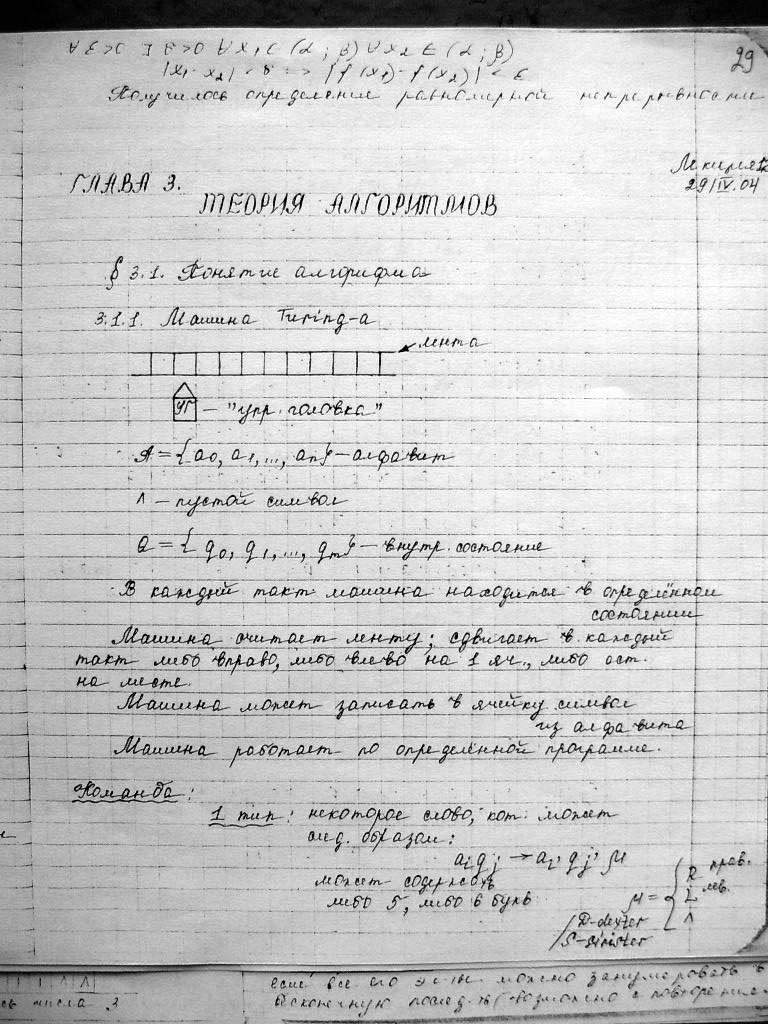 ∀ε>0 ∃δ>0 ∀x₁∈(α;β) ∀x₂∈(α;β)
29
|x₁-x₂|<δ => |f(x₁)-f(x₂)|<ε
Получилось определение равномерной непрерывности
Лекция 12
29/IV.04
ГЛАВА 3.
ТЕОРИЯ АЛГОРИТМОВ
§ 3.1. Понятие алгорифма
3.1.1. Машина Turing-а
лента
УГ – "упр. головка"
A = {a₀, a₁, ..., aₙ} – алфавит
Λ – пустой символ
Q = {q₀, q₁, ..., qₘ} – внутр. состояние
В каждый такт машина находится в определённом
состоянии
Машина считает ленту; сдвигает в каждый
такт либо вправо, либо влево на 1 яч., либо ост.
на месте.
Машина может записать в ячейку символ
из алфавита
Машина работает по определённой программе.
Команда:
1 тип: некоторое слово, кот. может
след. образом:
aᵢqⱼ → aᵢ' qⱼ' μ
может содержать
либо 5, либо 6 букв
μ = { R прав.
L лев.
Λ
D-dexter
S-sinister
числа 3
если все его эл-ты можно занумеровать в
бесконечную послед-ть (возможно с повторение